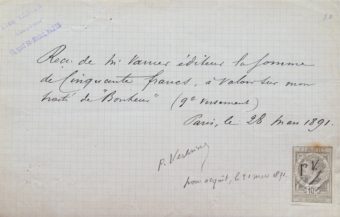 Reçu de M. Vanier éditeur la somme
de Cinquante francs, à valoir sur mon
traité de "Bonheur" (9e versement)
Paris, le 28 mars 1891.
P. Verlaine
pour acquit, le 21 mars 1891.
10